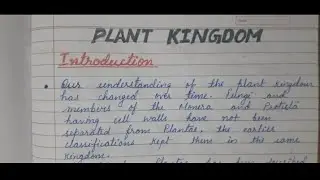 PLANT KINGDOM
Introduction
• Our understanding of the plant kingdom
has changed over time. Fungi and
members of the Monera and Protista
having cell walls have not been
separated from Plantae, the earlier
classifications kept them in the same
kingdom.
Plantae has been